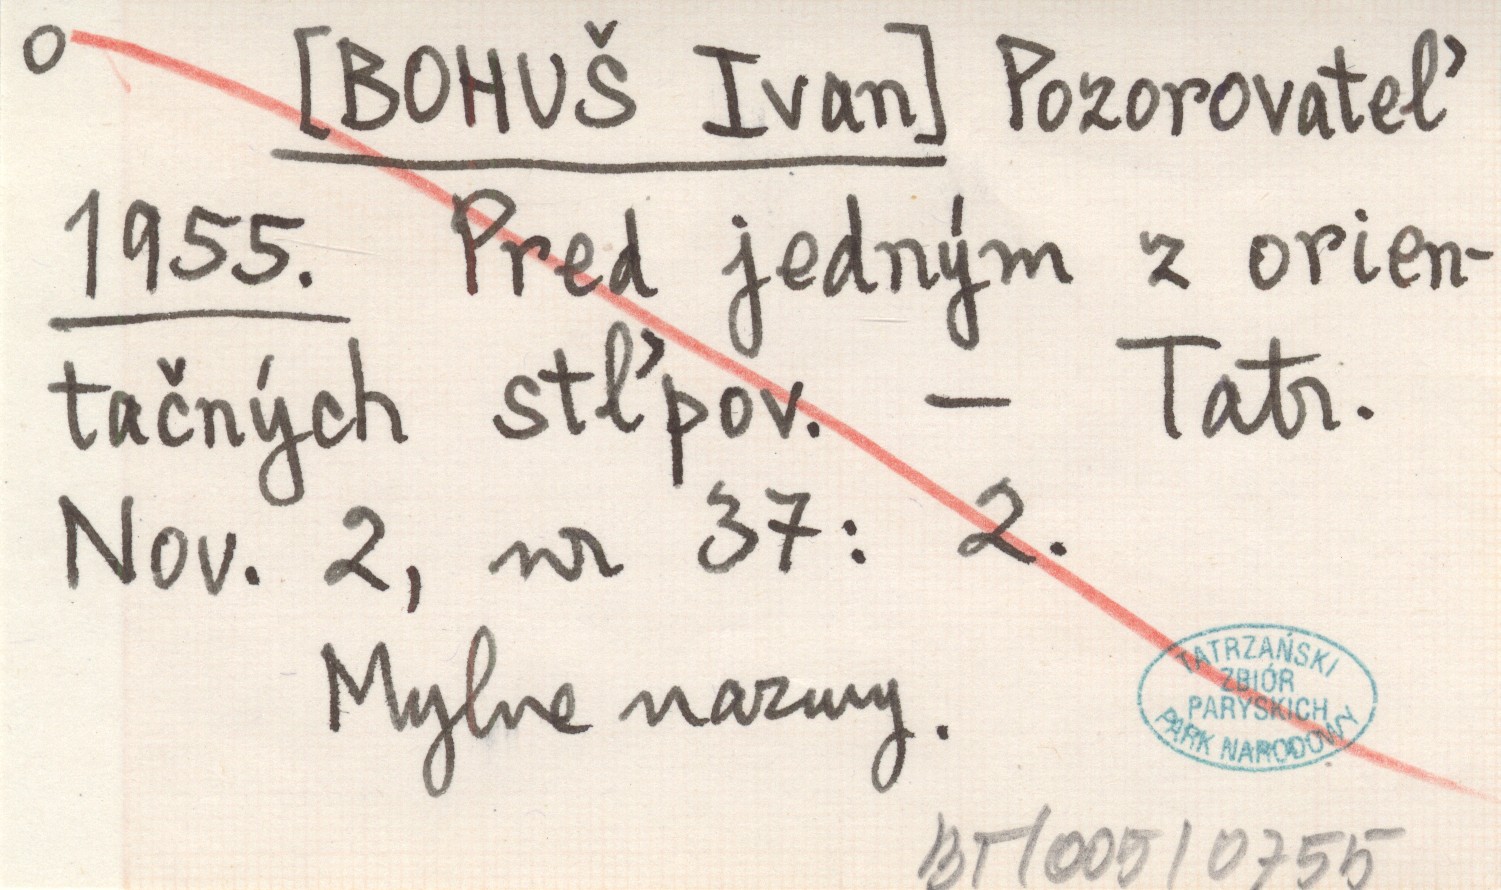 o [BOHUŠ Ivan] Pozorovateľ
1955. Pred jedným z orien-
tačných stĺpov. — Tatr.
Nov. 2, nr 37: 2.
Mylne nazwy.
TATRZAŃSKI
ZBIÓR
PARYSKICH
PARK NARODOWY
BT/005/0755